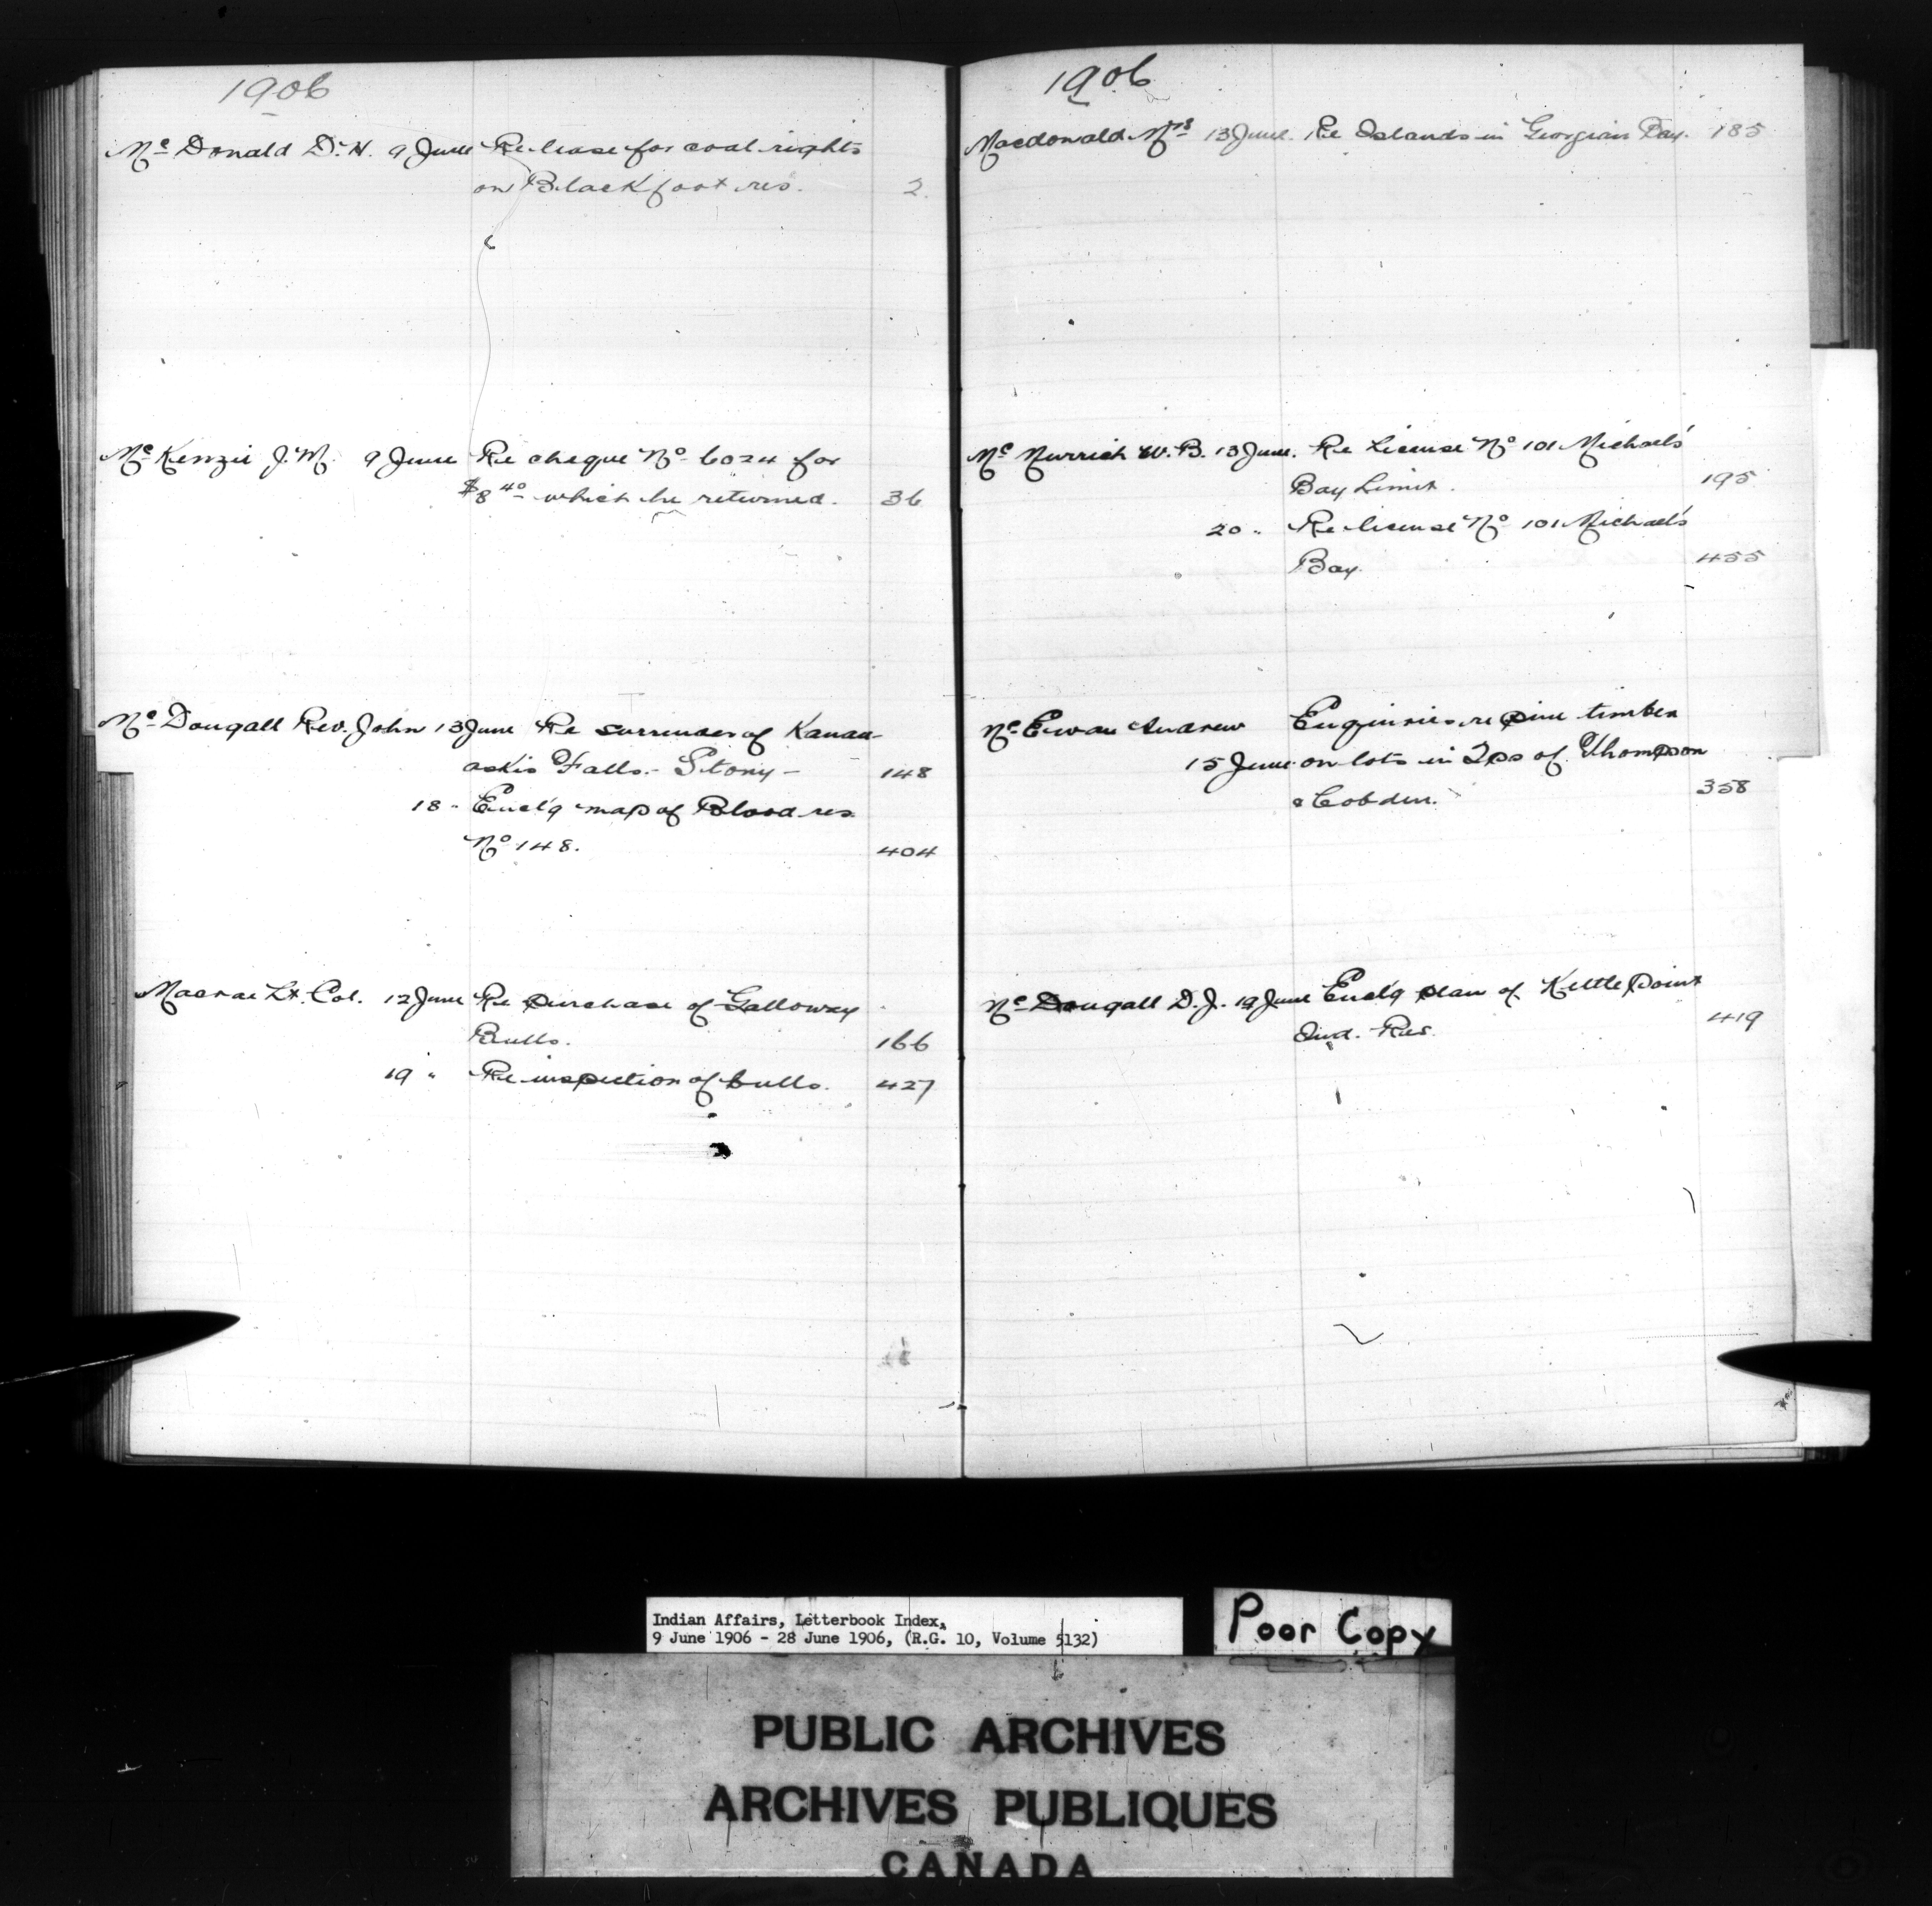 1906
Mc Donald D. H. 9 June Re lease for coal rights
on Blackfoot res. 2.
Mc Kenzie J. M. 9 June Re cheque No 6024 for
$8 40 which he returned. 36
Mc Dougall Rev. John 13 June Re surrender of Kanan-
askis Falls.- Stony - 148
18 " Encl'g map of Blood res.
No 148. 404
Macrae Lt. Col. 12 June Re purchase of Galloway
Bulls. 166
19 " Re inspection of bulls. 427
1906
Macdonald Mrs 13 June. Re Islands in Georgian Bay. 185
Mc Murrich W. B. 13 June. Re License No 101 Michael's
Bay Limit. 195
20 " Re license No 101 Michael's
Bay. 455
Mc Ewan Andrew Enquiries re pine timber
15 June on lots in Tps of Thompson
& Cobden. 358
Mc Dougall D. J. 19 June Encl'g plan of Kettle Point
Ind. Res. 419
Indian Affairs, Letterbook Index,
9 June 1906 - 28 June 1906, (R.G. 10, Volume 5132)
Poor Copy
PUBLIC ARCHIVES
ARCHIVES PUBLIQUES
CANADA